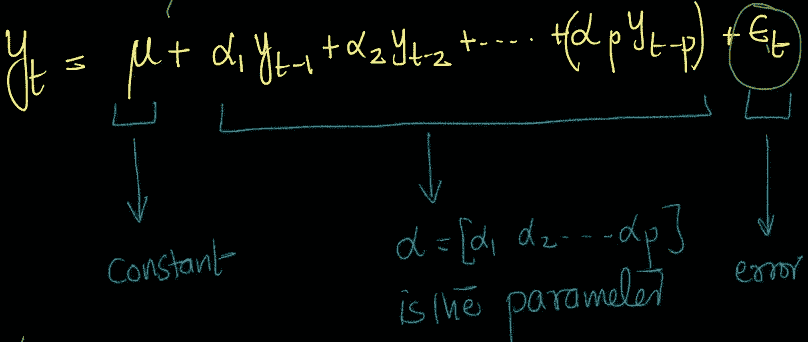 y_t = μ + α_1 y_{t-1} + α_2 y_{t-2} + ---- + (α_p y_{t-p}) + ε_t
constant
α = [α_1 α_2 ---- α_p]
is the parameter
error